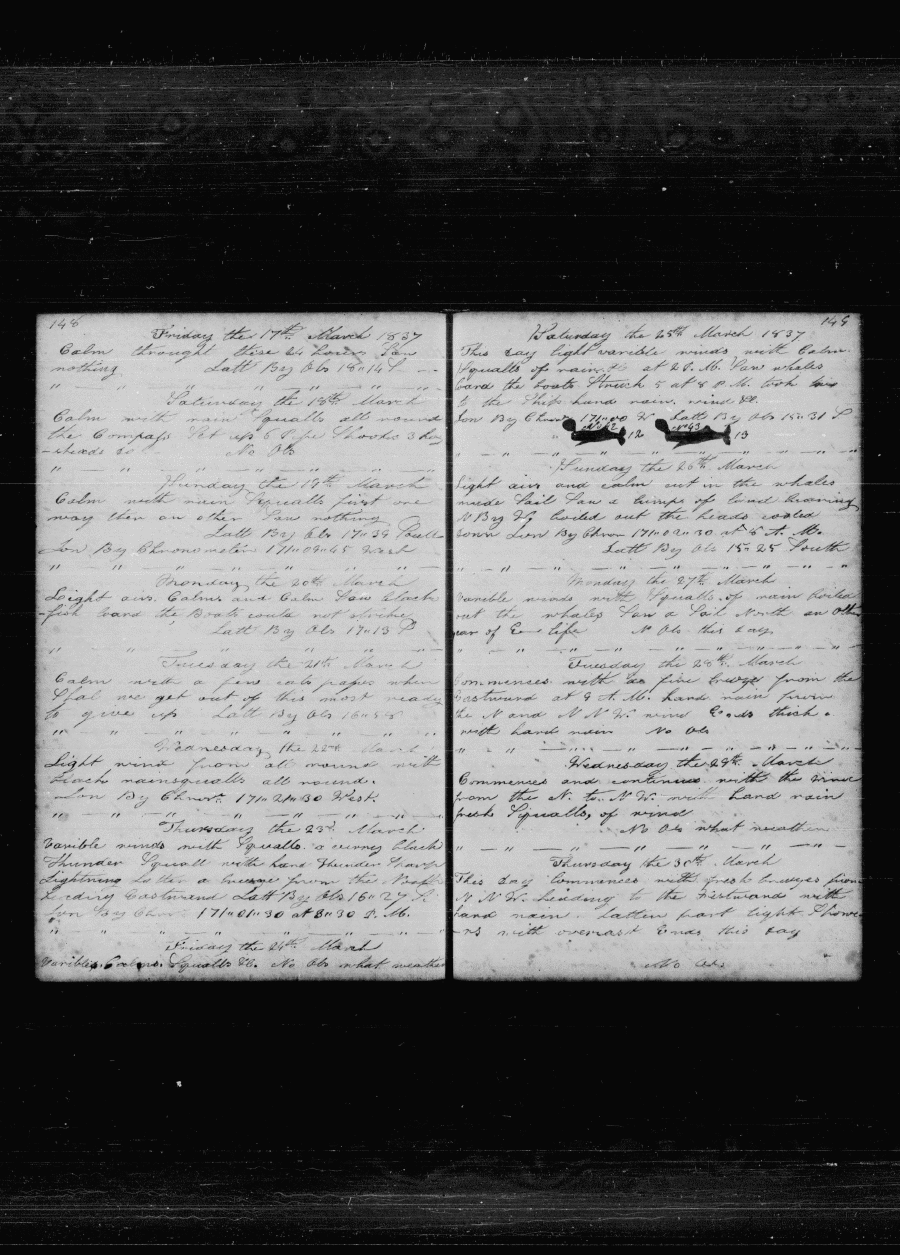 148
Friday the 17th March 1837
Calm throught these 24 hours Saw
nothing Latt By Obs 18"14 S
Saturday the 18th March
Calm with rain Squalls all round
the Compass Set up 6 Pipe Shooks 3 Hog
-sheads do No Obs
Sunday the 19th March
Calm with rain Squalls first one
way then an other Saw nothing
Latt By Obs 17"39 South
Lon By Chronometer 171"09"45 West
Monday the 20th March
Light airs Calms and Calm Saw black
-fish the Boats could not strike
Latt By Obs 17"13 S
Tuesday the 21th March
Calm with a few cats paws when
Shal we get out of this most ready
to give up Latt By Obs 16"55
Wednesday the 22nd March
Light wind from all round with
black rainsqualls all round.
Lon By Chron. 171"21"30 West.
Thursday the 23d March
Varible winds with Squalls. a black
Thunder Squall with hard Thunder Sharp
Lightning Latter a breeze from the North
Eastward Latt By Obs 16"27 S
Lon By Chron 171"01"30 at 3"30 P. M.
Friday the 24th March
Varibles. Squalls &c. No Obs what weather
149
Saturday the 25th March 1837
This day light varible winds with Calm
Squalls of rain &c at 2 P. M. Saw whales
the boats Struck 5 at 8 P M. took
to the Ship hard rain. wind &c.
Lon By Chron 171"00 W Latt By Obs 15"31 S
No 42 12 No 43 13
Sunday the 26th March
Light airs and calm cut in the whales
made Sail Saw a lump of land bearing
W By boiled out the heads cooled
down Lon By Chron 171"02"30 at 8 A. M.
Latt By Obs 15"25 South
Monday the 27th March
Varible winds with Squalls of rain boiled
out the whales Saw a Sail North an other
year of life No Obs this day
Tuesday the 28th March
Commences with fine breeze from the
Eastward at 8 A. M. hard rain from
the N and N N W. wind Ends thick
with hard rain No Obs
Wednesday the 29th March
Commences and continues with the wind
from the N. to. N W. with hard rain
fresh Squalls, of wind
No Obs what weather
Thursday the 30th March
This day Commences with fresh breezes from
N N W. heading to the Westward with
hard rain. Latter part light Showe
-rs with overcast Ends this day
No Obs.